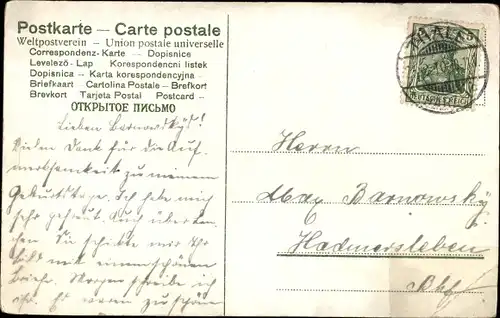 Postkarte — Carte postale
Weltpostverein – Union postale universelle
Correspondenz-Karte – Dopisnice
Levelező-Lap Korespondencni listek
Dopisnica – Karta korespondencyjna –
Briefkaart Cartolina Postale – Brefkort
Brevkort Tarjeta Postal Postcard –
ОТКРЫТОЕ ПИСЬМО
Lieben Barnowsky's!
Vielen Dank für die Auf-
merksamkeit zu meinem
Geburtstage. Ich habe mich
sehr gefreut. Auch
Sie mir Ihr
Bild mit einem schönen
Briefe. Morgen schreibe ich
Es waren zu schöne
THALE
Herrn
Max Barnowsky
Hadmersleben
Bhf.